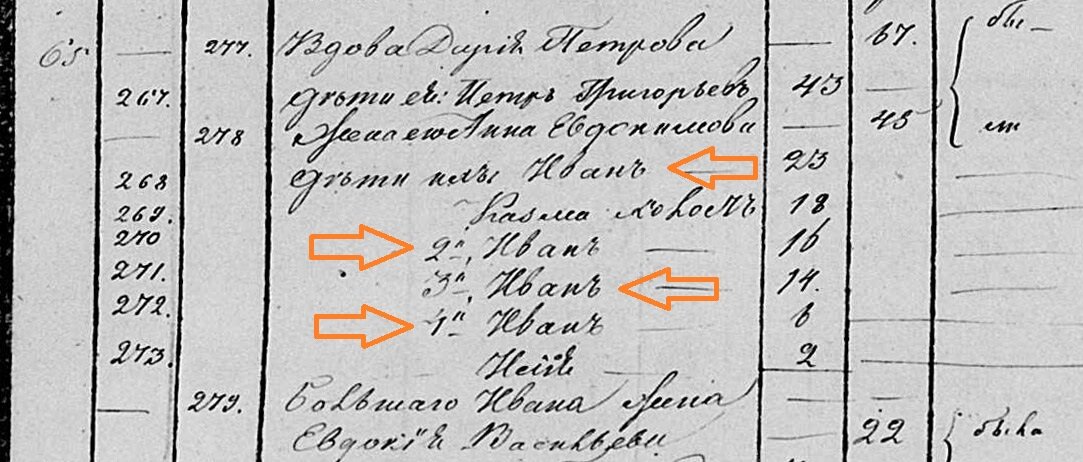 65 — 277. Вдова Дарія Петрова — 67. бы-
267. Дѣти ея: Петръ Григорьевъ 43 —
— 278 Жена его Анна Евдокимова — 45 ли
268 Дѣти ихъ Иванъ — 23 —
269. Казма холостъ 18 —
270 2й, Иванъ — 16 —
271. 3й, Иванъ — 14. —
272. 4й Иванъ — 6 —
273. — 2 —
— 279. Большаго Ивана Жена
Евдокія Васильева — 22